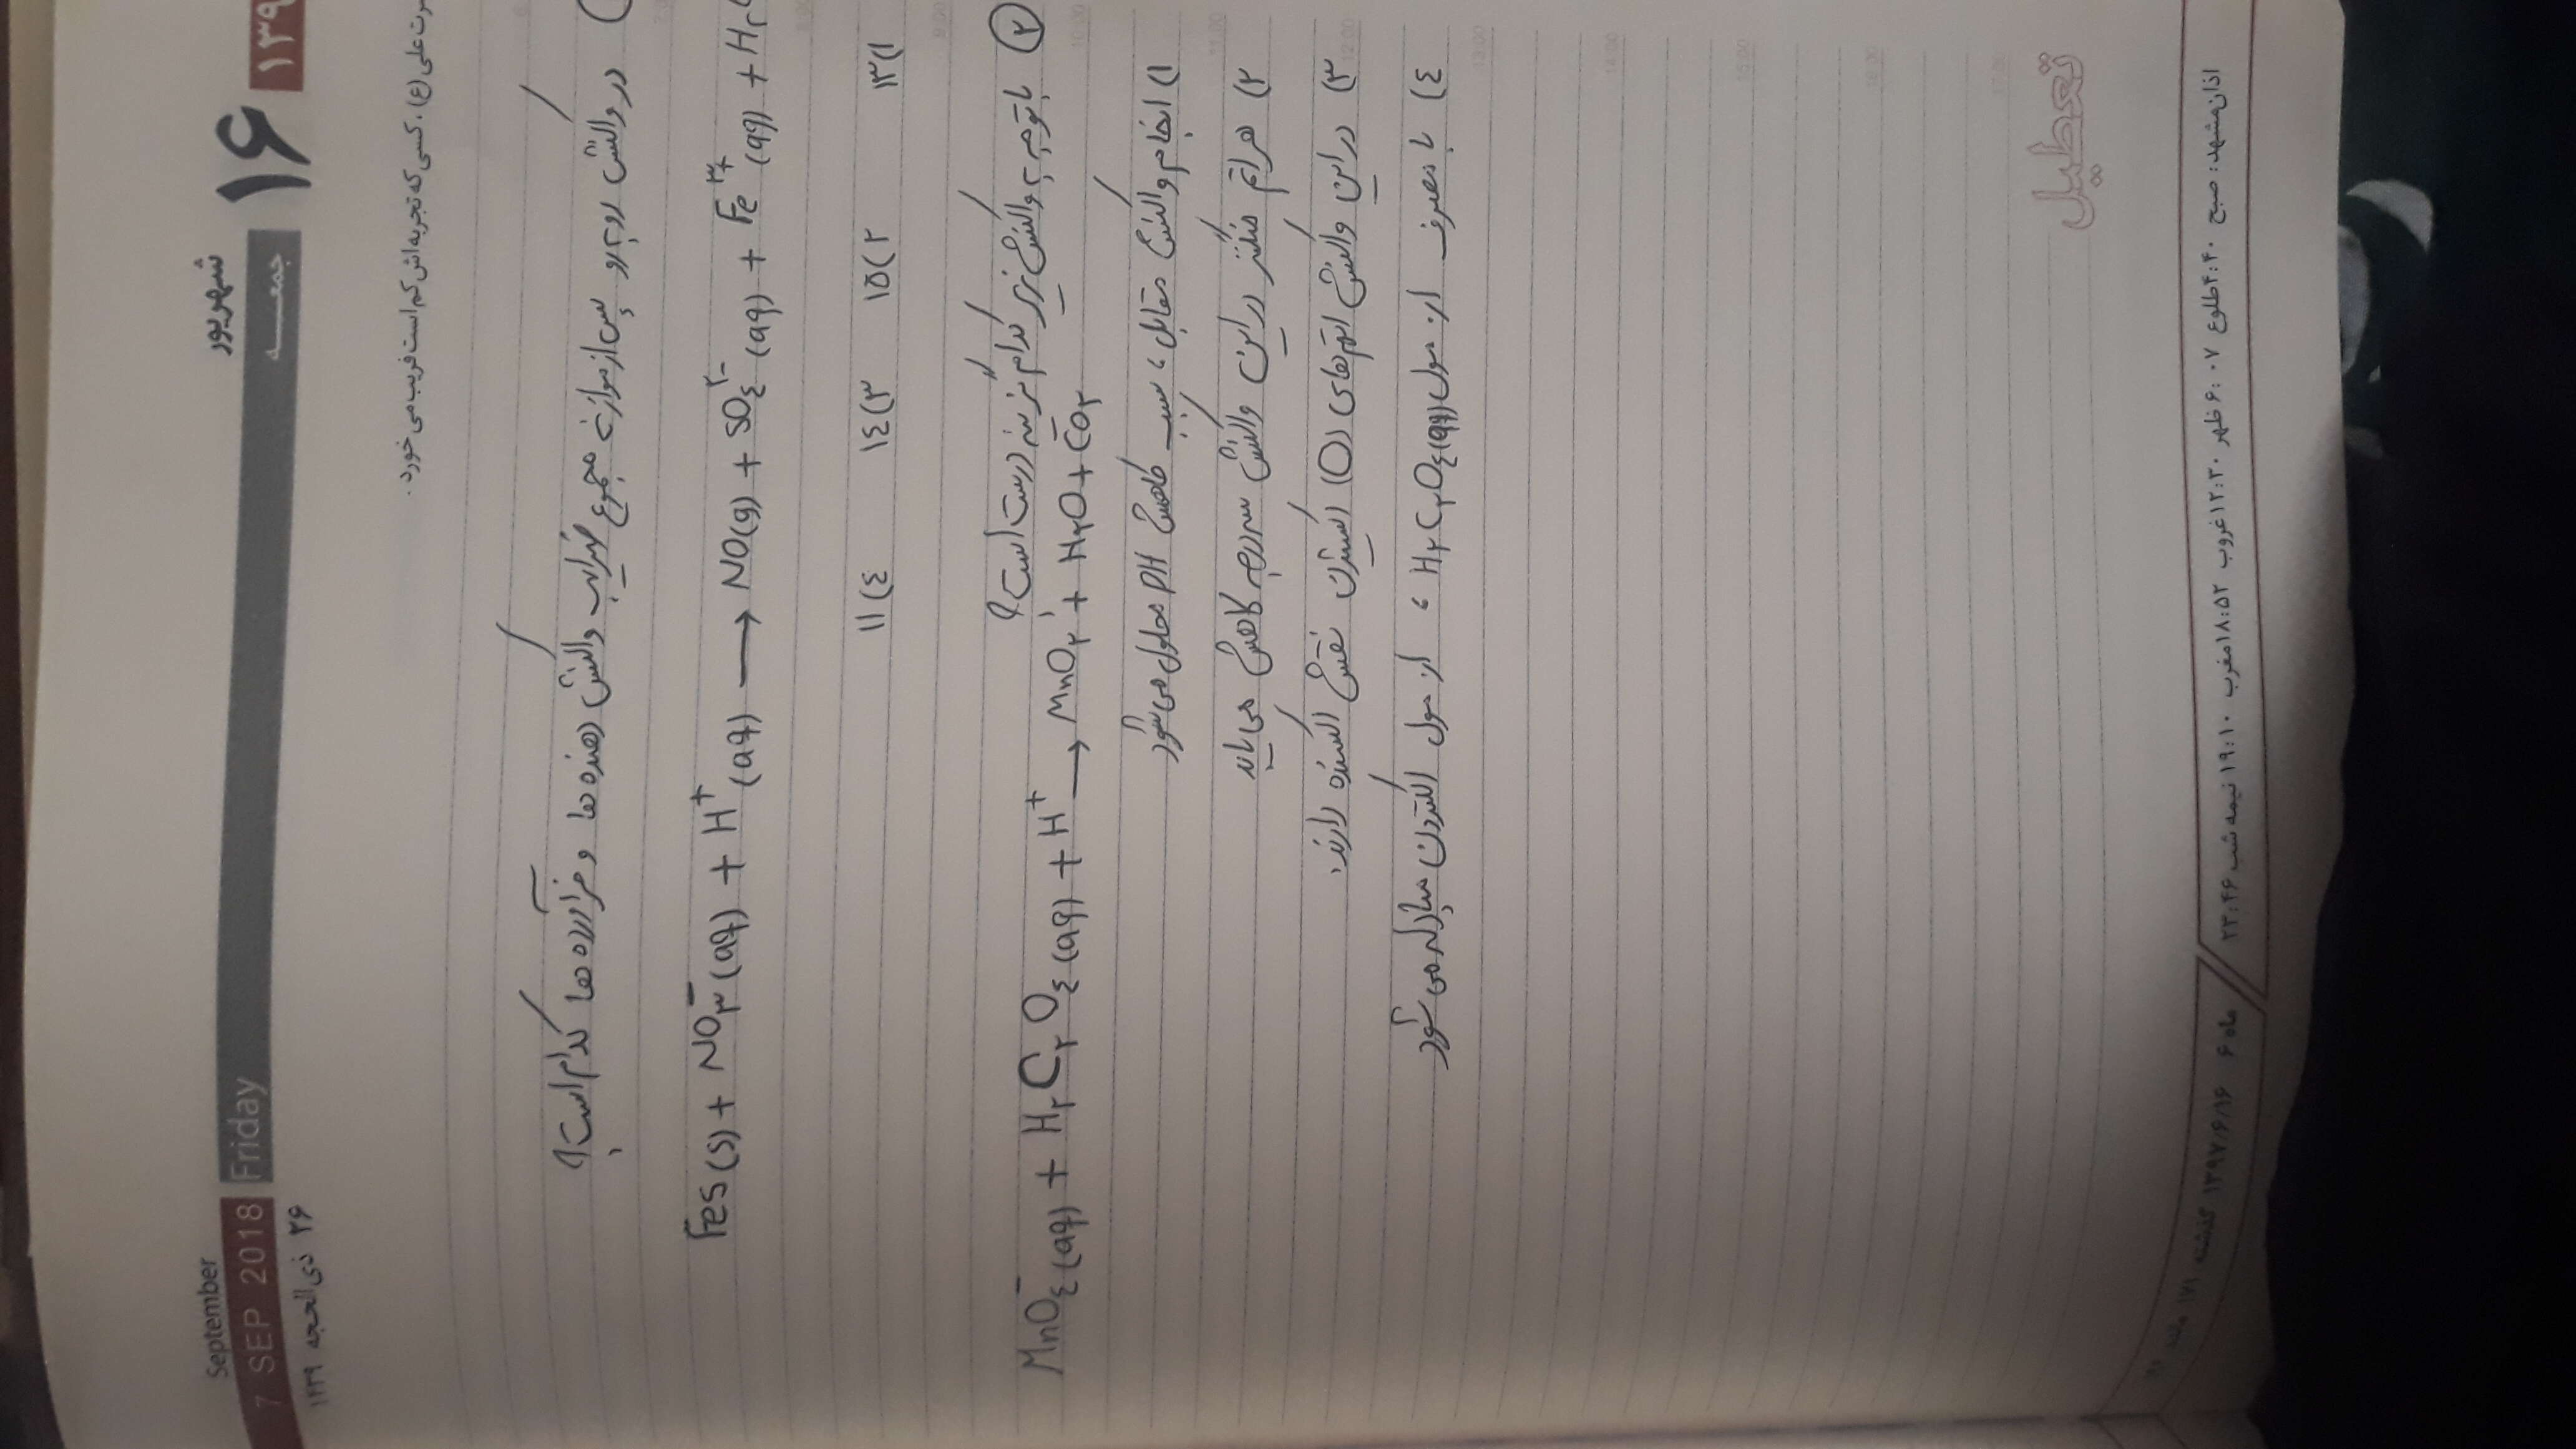 September
شهریور
7 SEP 2018
Friday
جمعه
۱۶
۱۳۹
۲۶ ذی الحجه ۱۴۳۹
علی (ع)، کسی که تجربه اش کم است فریب می خورد.
در واکنش روبرو پس از موازنه مجموع ضرایب واکنش دهنده ها و فرآورده ها کدام است؟
Fes (s) + NO۳⁻ (aq) + H⁺ (aq) → NO(g) + SO٤²⁻ (aq) + Fe³⁺ (aq) + H۲
۱) ۱۳ ۲) ۱۵ ۳) ۱٤ ٤) ۱۱
۲ باتوجه به واکنش زیر کدام گزینه درست است؟
MnO٤⁻ (aq) + H۲C۲O٤ (aq) + H⁺ → MnO۲ + H۲O + CO۲
۱) انجام واکنش مقابل، سبب کاهش PH محلول می شود
۲) هر اتم منگنز در این واکنش سه درجه کاهش می یابد
۳) در این واکنش اتم های (O) اکسیژن نقش اکسنده دارند.
٤) با مصرف ۱ مول H۲C۲O٤(aq)، ۱ مول الکترون مبادله می شود
تعطیل
اذان مشهد: صبح ۴:۴۰ طلوع ۶:۰۷ ظهر ۱۲:۳۰ غروب ۱۸:۵۲ مغرب ۱۹:۱۰ نیمه شب ۲۳:۴۶
ماه ۶ ۱۳۹۷/۶/۱۶ گذشته ۱۷۱